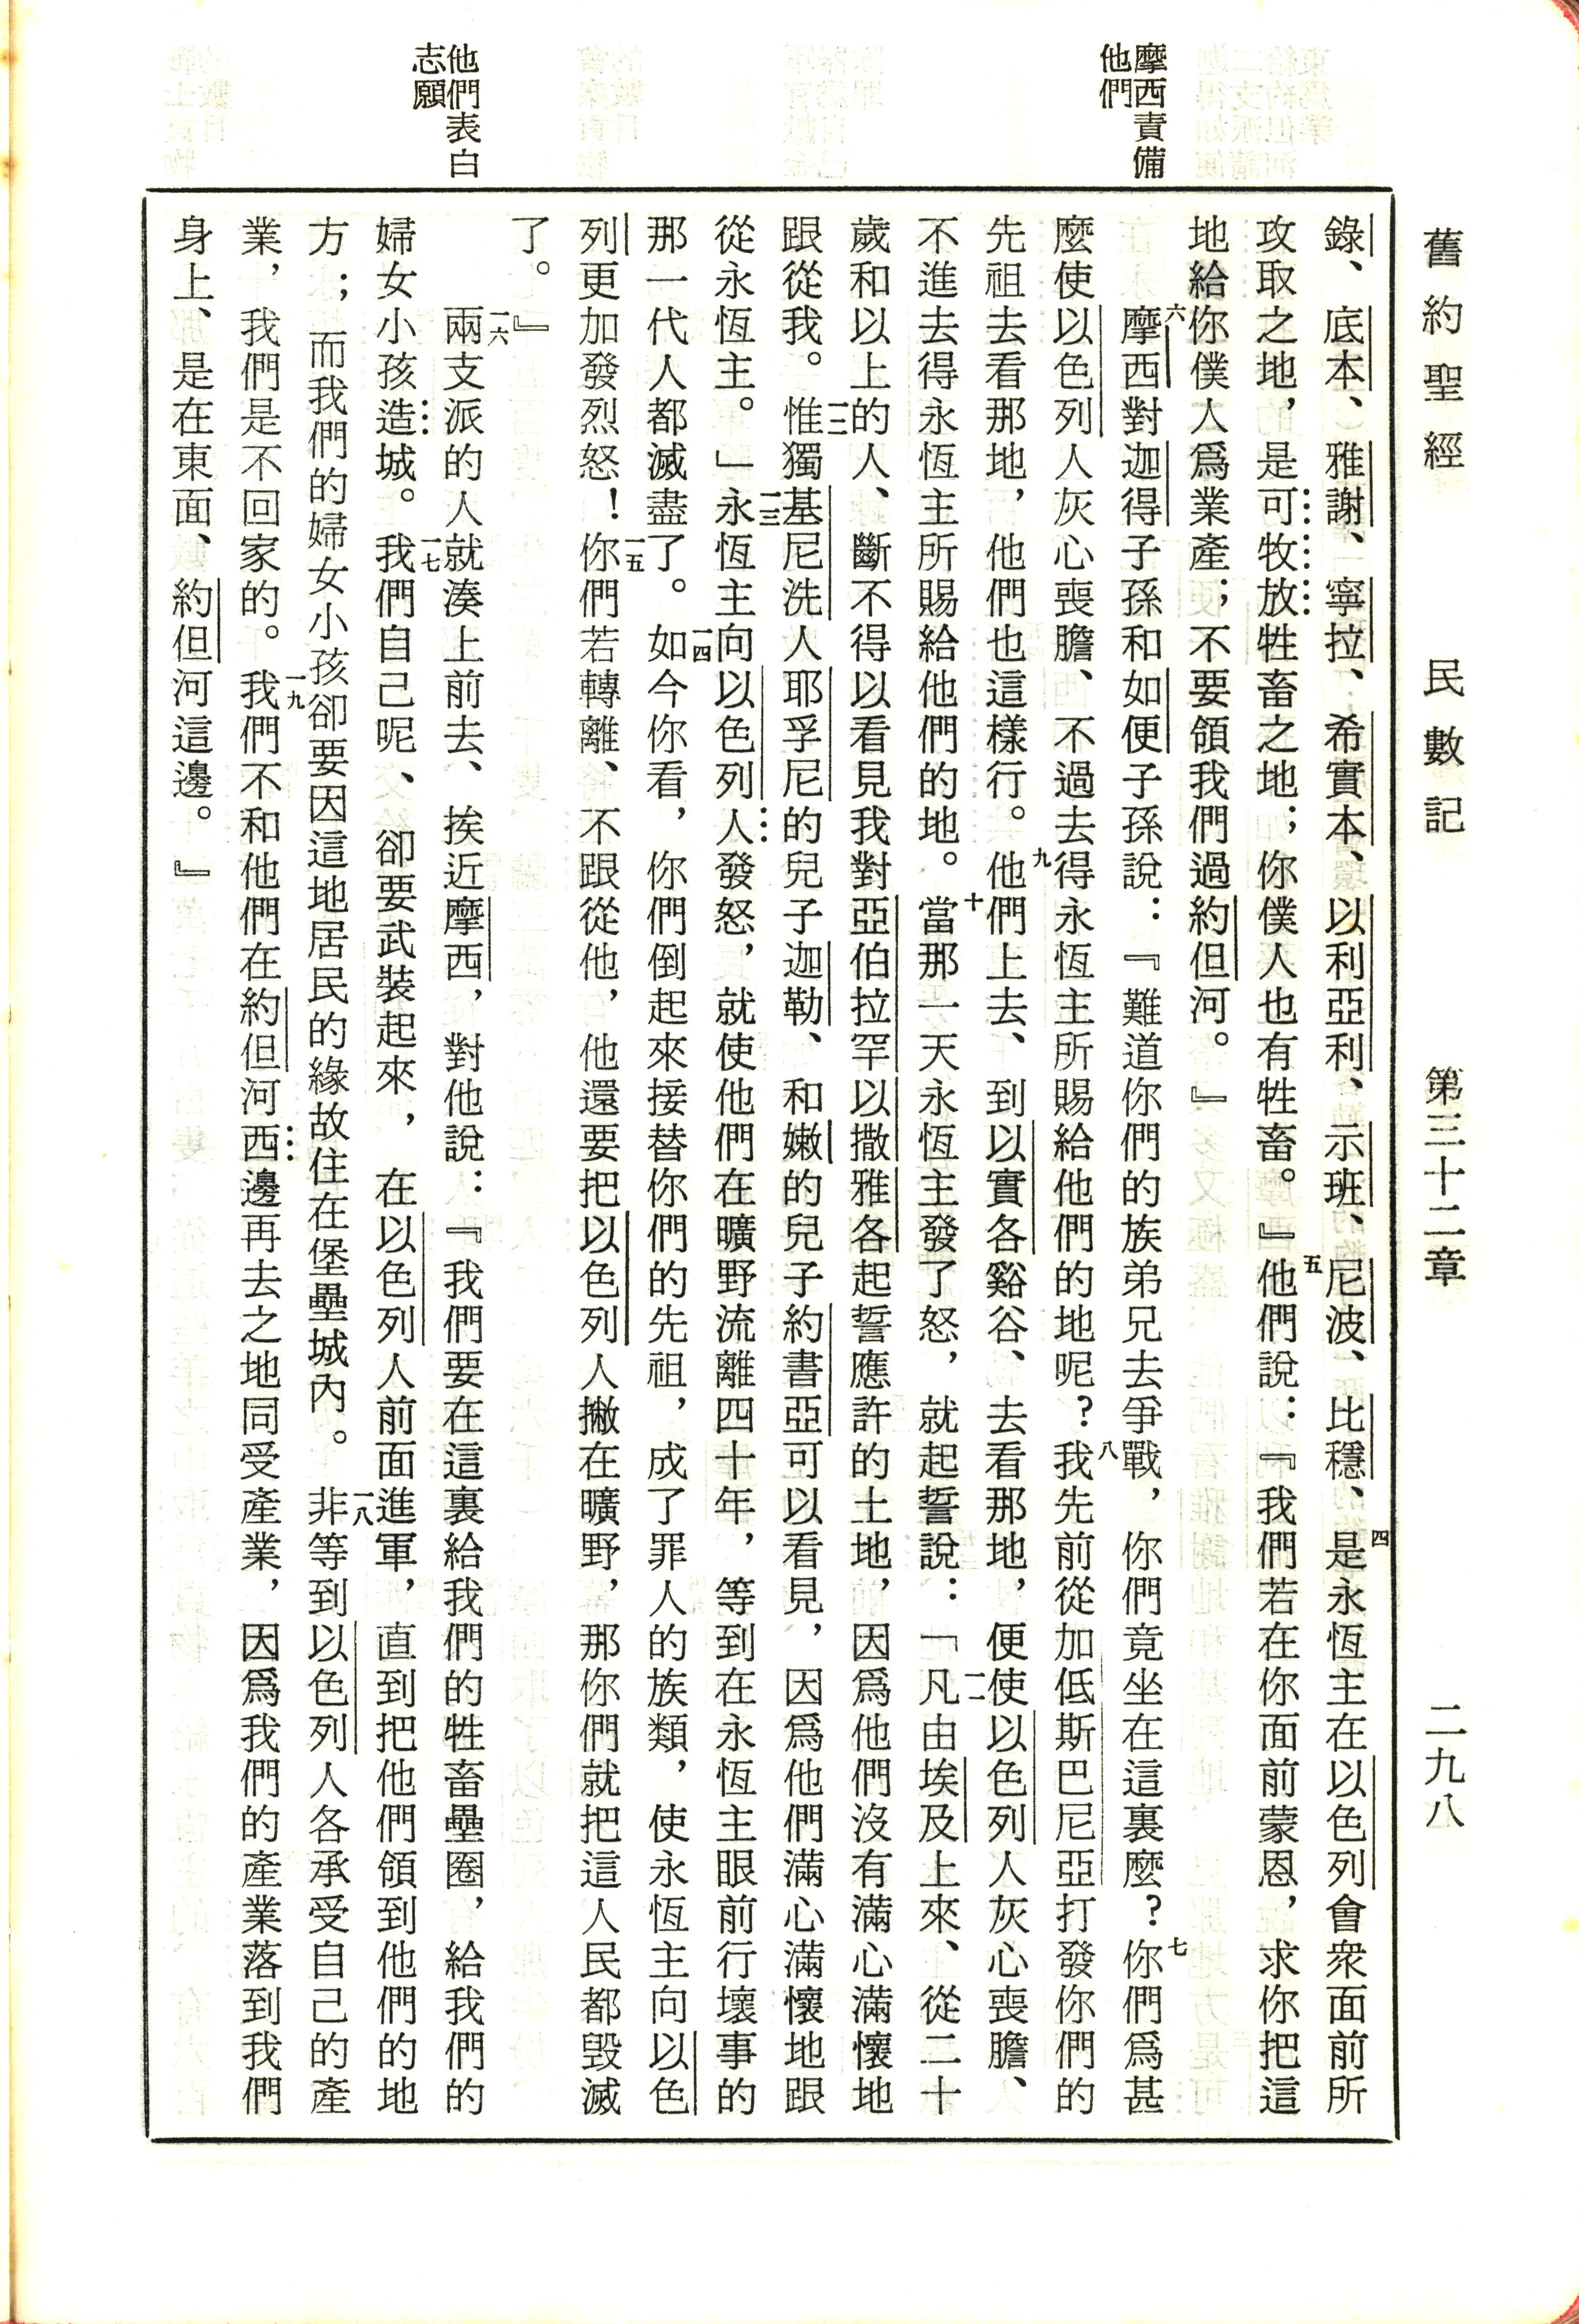 舊約聖經　民數記　第三十二章　二九八
摩西責備
他們
他們表白
志願
錄、底本、雅謝、寧拉、希實本、以利亞利、示班、尼波、比穩、四是永恆主在以色列會衆面前所
攻取之地，是可牧放牲畜之地；你僕人也有牲畜。』五他們說：『我們若在你面前蒙恩，求你把這
地給你僕人爲業產；不要領我們過約但河。』
六摩西對迦得子孫和如便子孫說：『難道你們的族弟兄去爭戰，你們竟坐在這裏麼？七你們爲甚
麼使以色列人灰心喪膽、不過去得永恆主所賜給他們的地呢？八我先前從加低斯巴尼亞打發你們的
先祖去看那地，他們也這樣行。九他們上去、到以實各谿谷、去看那地，便使以色列人灰心喪膽、
不進去得永恆主所賜給他們的地。十當那一天永恆主發了怒，就起誓說：「一一凡由埃及上來、從二十
歲和以上的人、斷不得以看見我對亞伯拉罕以撒雅各起誓應許的土地，因爲他們沒有滿心滿懷地
跟從我。一二惟獨基尼洗人耶孚尼的兒子迦勒、和嫩的兒子約書亞可以看見，因爲他們滿心滿懷地跟
從永恆主。」一三永恆主向以色列人發怒，就使他們在曠野流離四十年，等到在永恆主眼前行壞事的
那一代人都滅盡了。一四如今你看，你們倒起來接替你們的先祖，成了罪人的族類，使永恆主向以色
列更加發烈怒！一五你們若轉離、不跟從他，他還要把以色列人撇在曠野，那你們就把這人民都毀滅
了。』
一六兩支派的人就湊上前去、挨近摩西，對他說：『我們要在這裏給我們的牲畜壘圈，給我們的
婦女小孩造城。一七我們自己呢、卻要武裝起來，在以色列人前面進軍，直到把他們領到他們的地
方；而我們的婦女小孩卻要因這地居民的緣故住在堡壘城內。一八非等到以色列人各承受自己的產
業，我們是不回家的。一九我們不和他們在約但河西邊再去之地同受產業，因爲我們的產業落到我們
身上、是在東面、約但河這邊。』